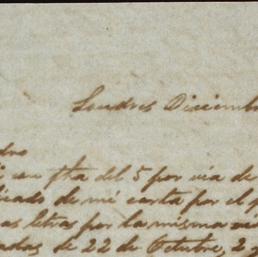 Londres Diciemb
dro
con fha del 5 por via de
iado de mi carta por el p
as letras por la misma vi
adas de 22 de Octubre, 2